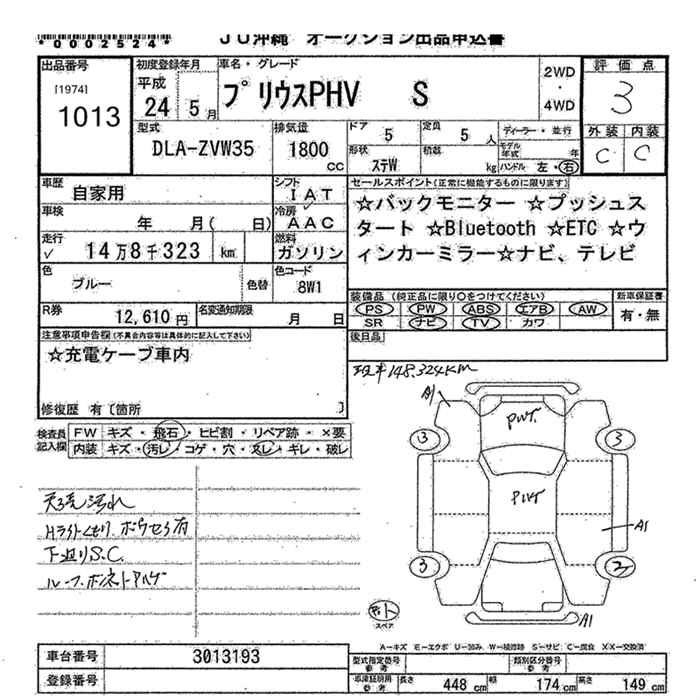 *0002524*
JU沖縄 オークション出品申込書
出品番号
[1974]
1013
初度登録年月
平成
24 5月
車名・グレード
プリウスPHV S
2WD
・
4WD
評価点
3
外装 内装
C C
型式
DLA-ZVW35
排気量
1800
cc
ドア 5
定員 5人
ディーラー・並行
形状 ステW
積載 kg
モデル年式 年
ハンドル 左・右
車歴
自家用
シフト
IAT
車検
年 月( 日)
冷房
AAC
走行
✓ 14万8千323 km
燃料
ガソリン
色
ブルー
色替
色コード
8W1
R券
12,610円
名変通知期限
月 日
セールスポイント(正常に機能するものに限ります)
☆バックモニター ☆プッシュス
タート ☆Bluetooth ☆ETC ☆ウ
ィンカーミラー☆ナビ、テレビ
装備品 (純正品に限り○をつけてください)
PS PW ABS エアB AW
SR ナビ TV カワ
新車保証書
有・無
後日品
注意事項申告欄(不具合内容等は具体的に記入して下さい)
☆充電ケーブ車内
修復歴 有〔箇所 〕
現車148,324KM
検査員
記入欄
FW キズ・飛石・ヒビ割・リペア跡・×要
内装 キズ・汚レ・コゲ・穴・スレ・ギレ・破レ
天張汚れ
Hライトくもり、ボウセラ有
下廻りS.C.
ルーフ、ボンネトハゲ
A1
PWT.
3 3
PWT
A1
3 2
スペア
A1
A-キズ E-エクボ U-凹み W-補修跡 S-サビ C-腐食 XX-交換済
車台番号
3013193
登録番号
型式指定番号
参考
類別区分番号
参考
車庫証明用
参考
長さ 448cm 幅 174cm 高さ 149cm